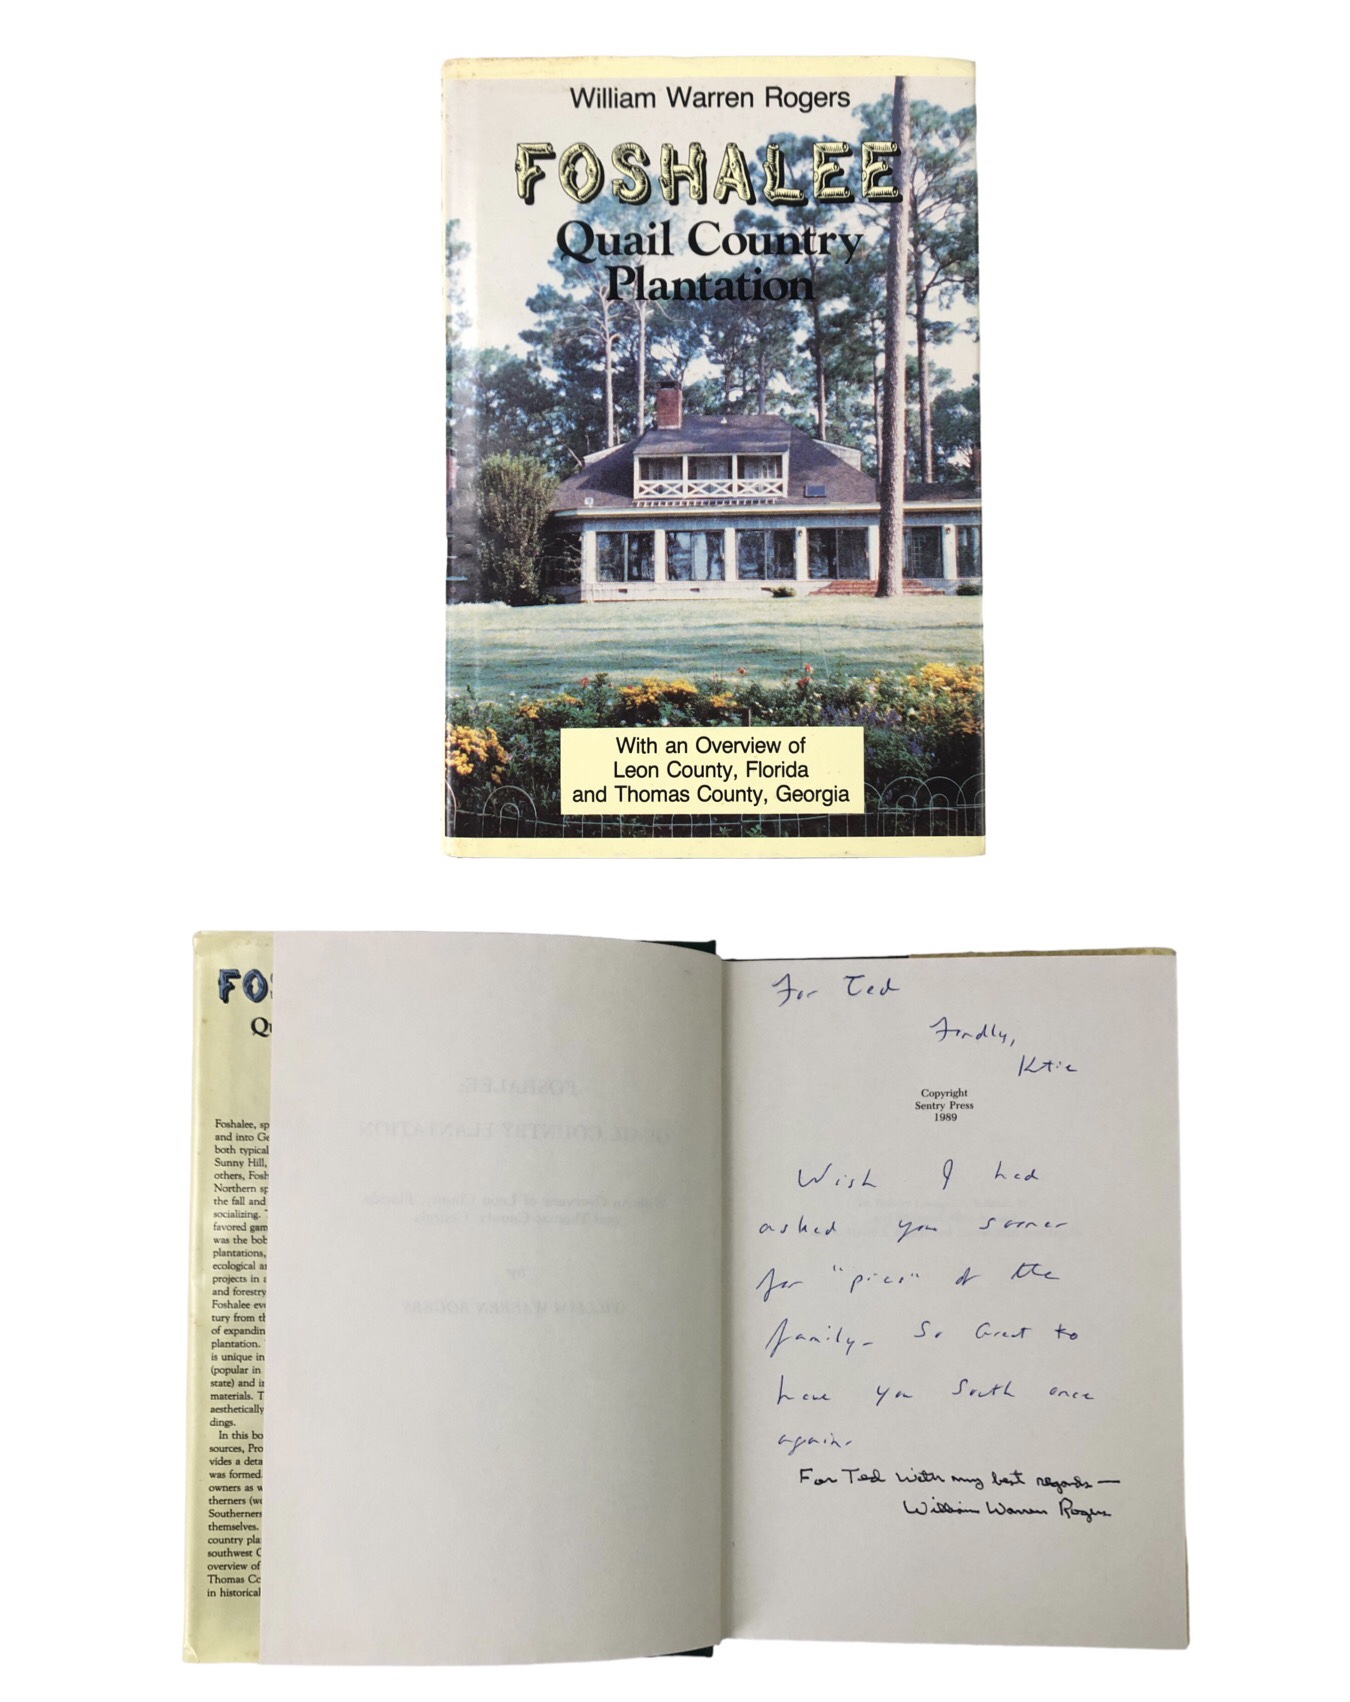 William Warren Rogers
FOSHALEE
Quail Country
Plantation
With an Overview of
Leon County, Florida
and Thomas County, Georgia
FO
Qu
Foshalee, sp
and into Ge
both typical
Sunny Hill,
others, Fosh
Northern sp
the fall and
socializing. T
favored gam
was the bob
plantations,
ecological an
projects in a
and forestry
Foshalee eve
tury from th
of expandin
plantation.
is unique in
(popular in
state) and in
materials. T
aesthetically
dings.
In this bo
sources, Pro
vides a deta
was formed.
owners as w
therners (we
Southerners
themselves.
country pla
southwest G
overview of
Thomas Co
in historical
For Ted
Fondly,
Katie
Copyright
Sentry Press
1989
Wish I had
asked you sooner
for "pics" of the
family- So Great to
have you South once
again.
For Ted with my best regards—
William Warren Rogers